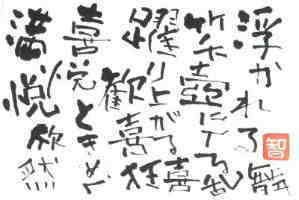 浮かれる
笑壺に入る
躍り上がる
歓喜
狂喜乱舞
喜悦ときめく
満悦欣然
智